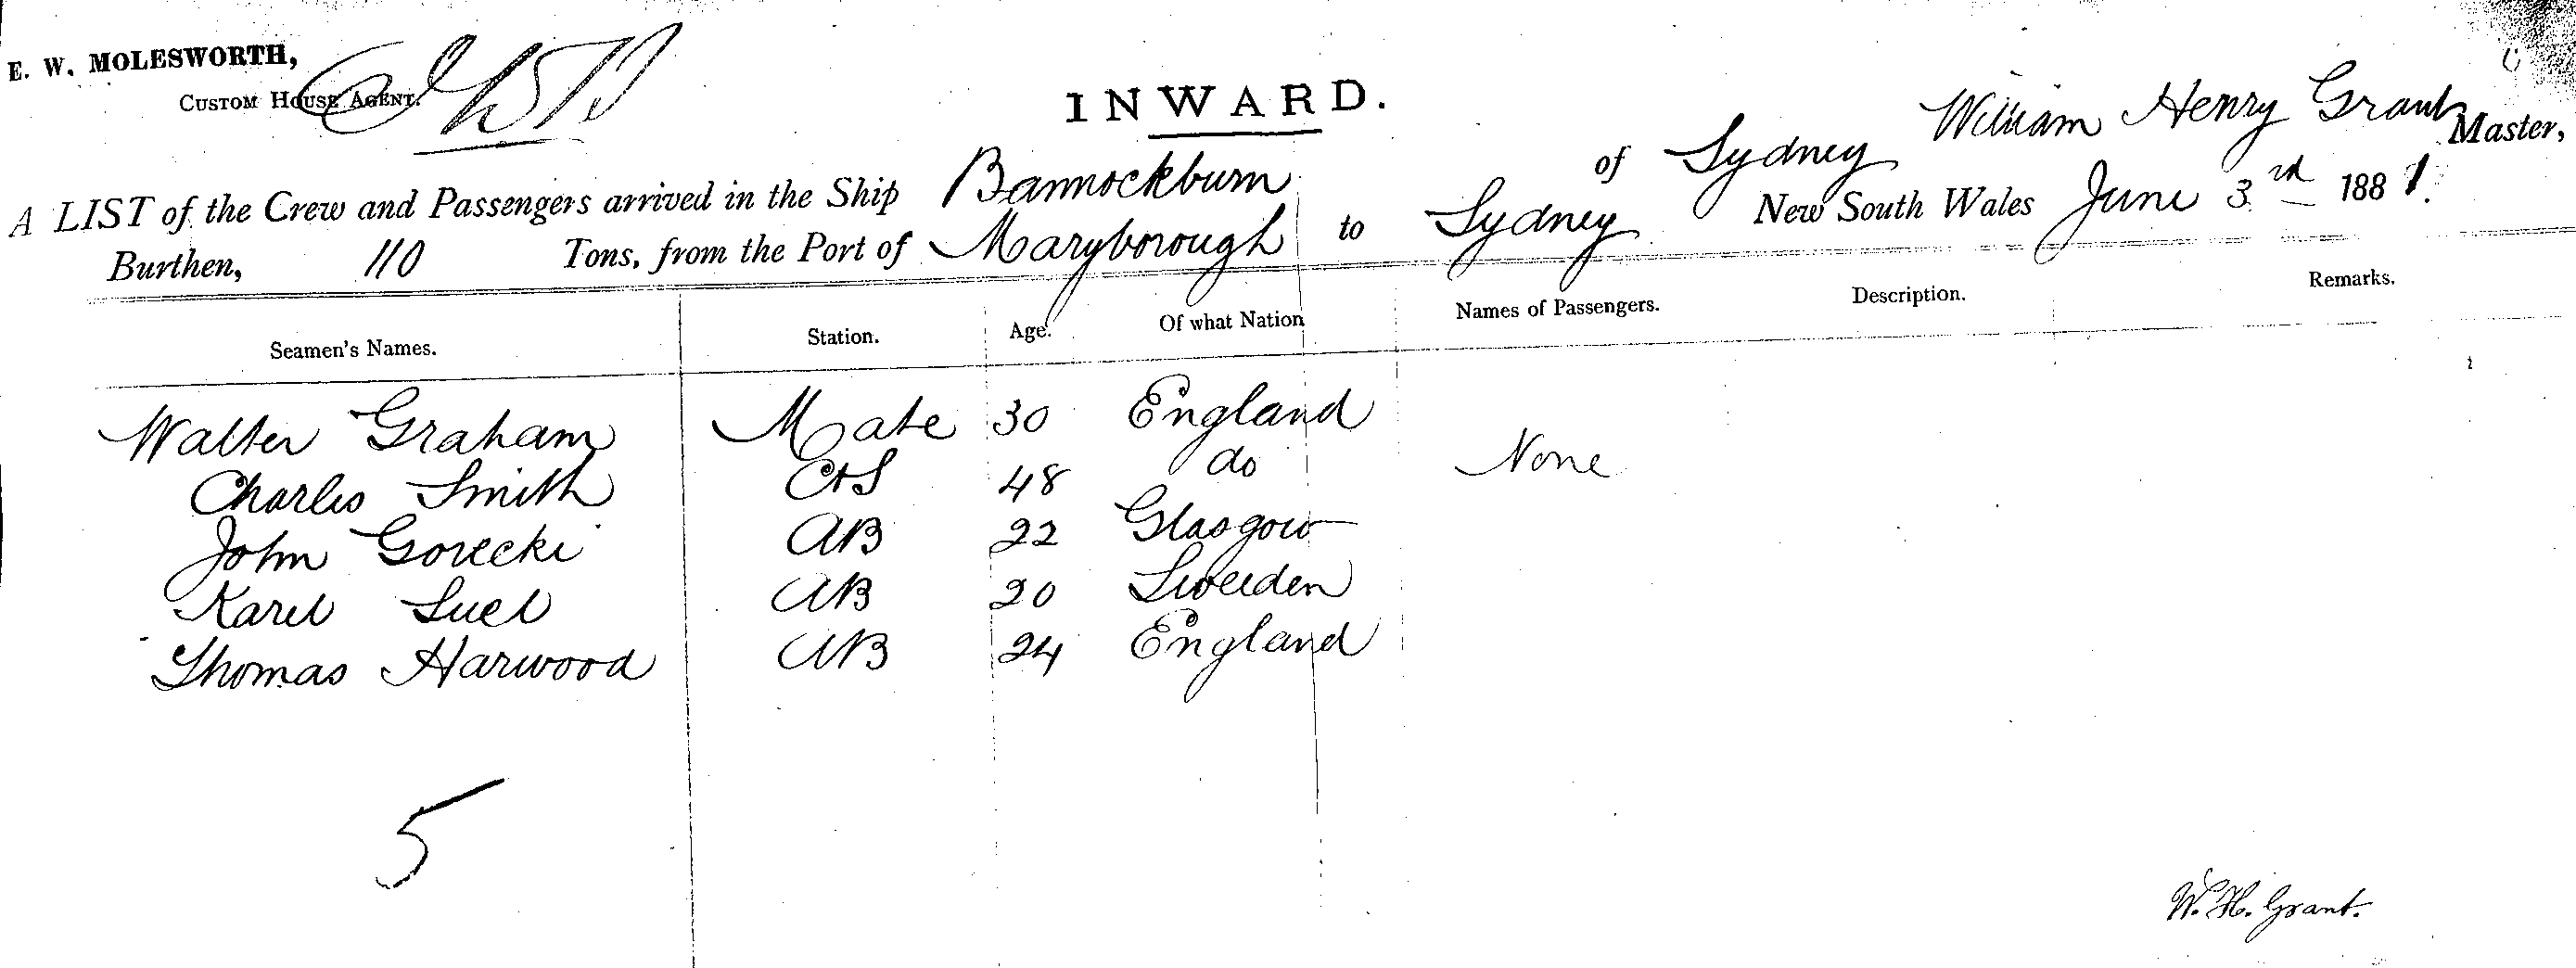 E. W. MOLESWORTH,
CUSTOM HOUSE AGENT.
INWARD.
A LIST of the Crew and Passengers arrived in the Ship Bannockburn of Sydney William Henry Grant Master,
Burthen, 110 Tons, from the Port of Maryborough to Sydney New South Wales June 3rd 1881.
Seamen's Names. Station. Age. Of what Nation Names of Passengers. Description. Remarks.
Walter Graham Mate 30 England None
Charles Smith C&S 48 do
John Gorecki AB 22 Glasgow
Karel Suel AB 20 Sweeden
Thomas Harwood AB 24 England
5
W. H. Grant.